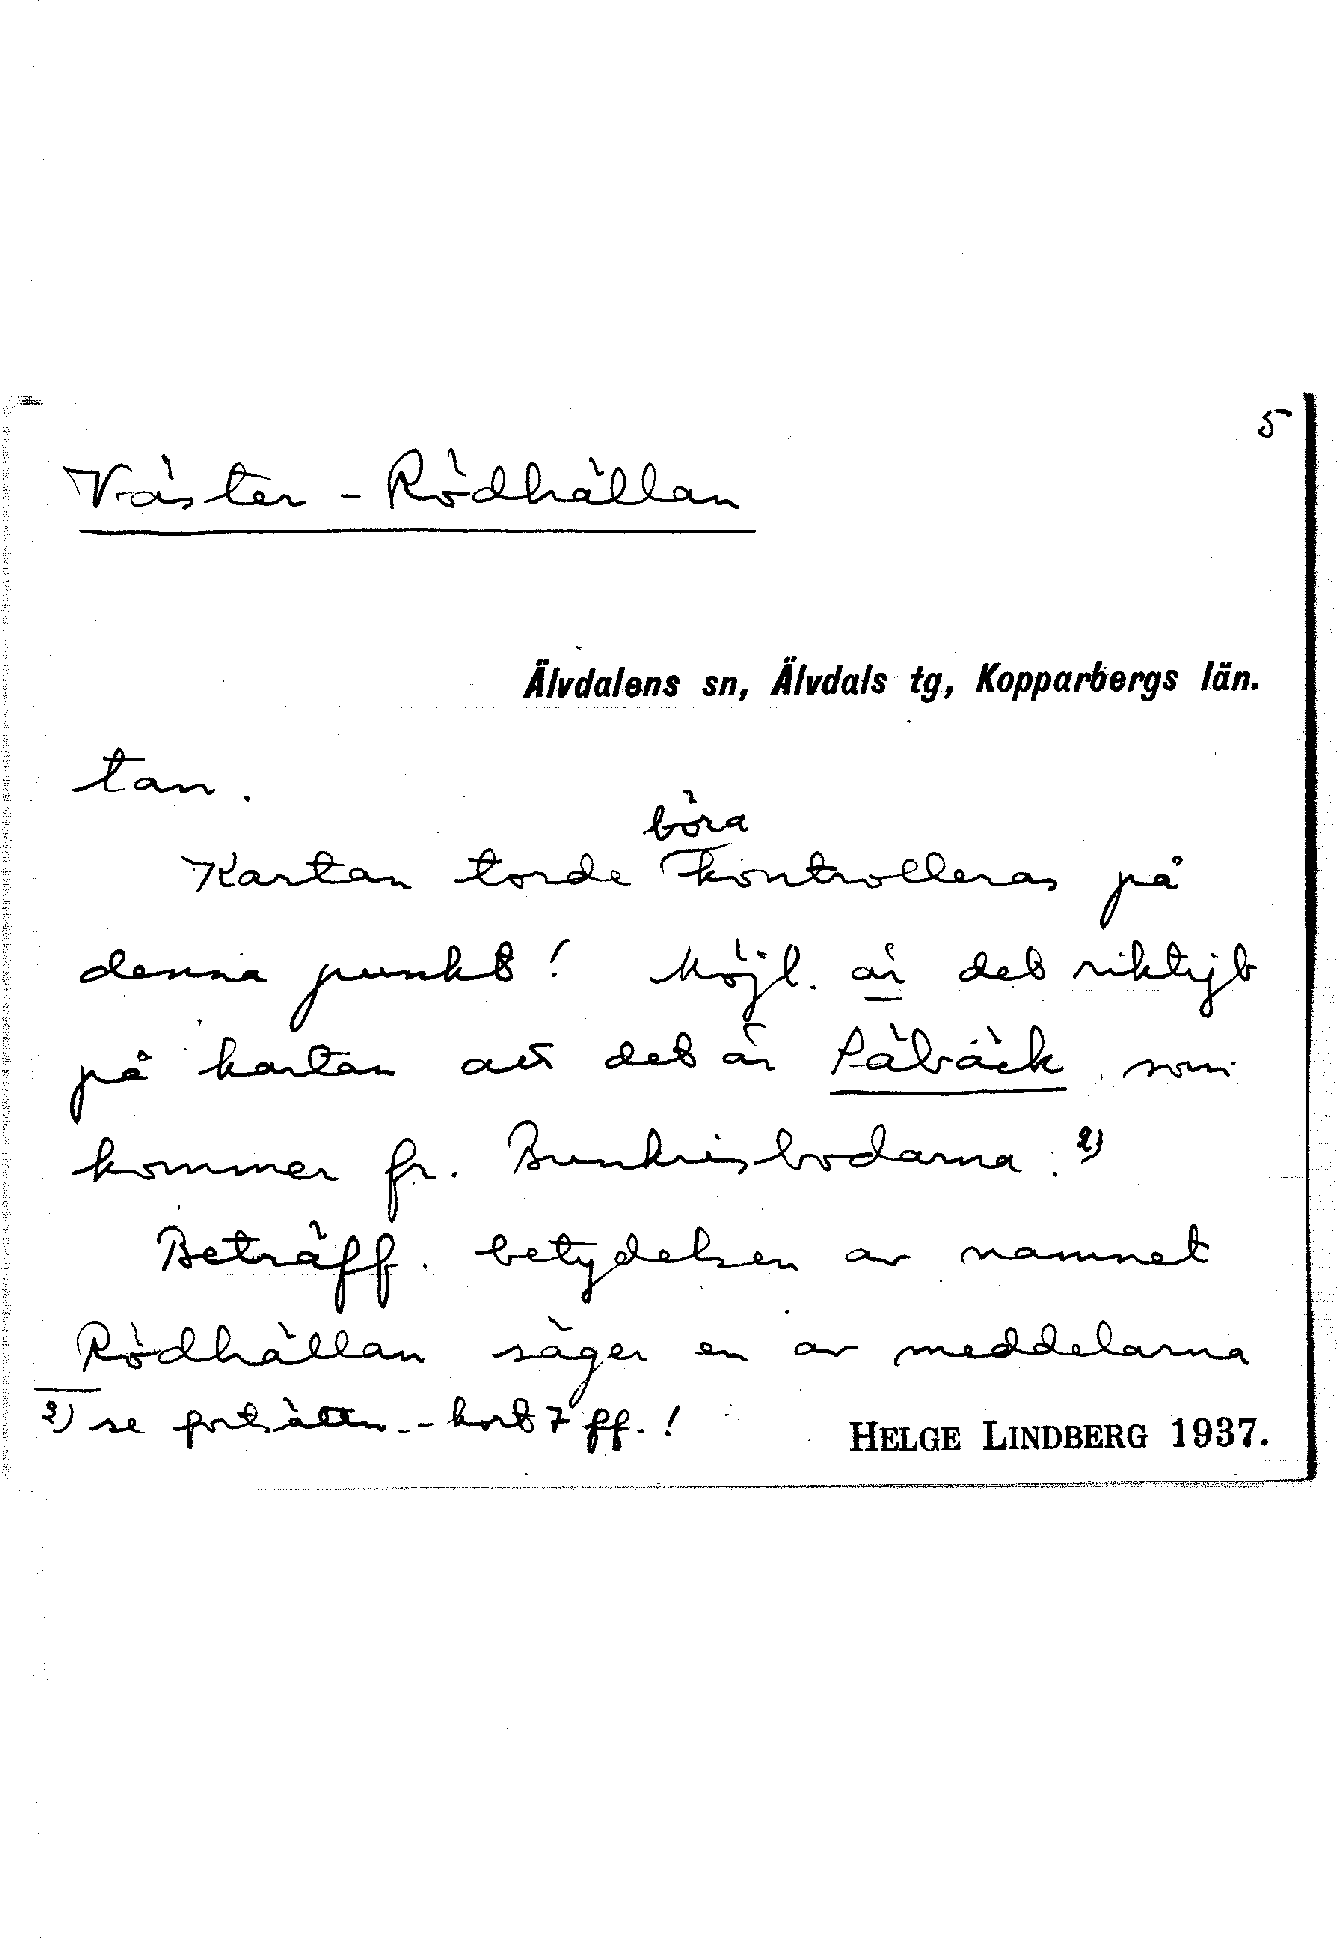 5
Väster-Rödhällan
Älvdalens sn, Älvdals tg, Kopparbergs län.
tan.
böra
Kartan torde kontrolleras på
denna punkt! Möjl. är det riktigt
på kartan att det är Påbäck som
kommer fr. Bunkrisbodarna. 2)
Beträff. betydelsen av namnet
Rödhällan säger en av meddelarna
2) se fortsättn.-kort 7 ff.!
HELGE LINDBERG 1937.